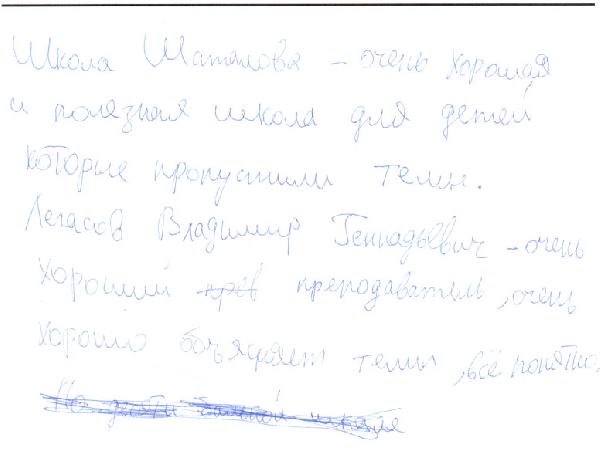 Школа Шаталова – очень хорошая
и полезная школа для детей
которые пропустили темы.
Легасов Владимир Геннадьевич – очень
хороший преподаватель, очень
хорошо объясняет темы, всё понятно.